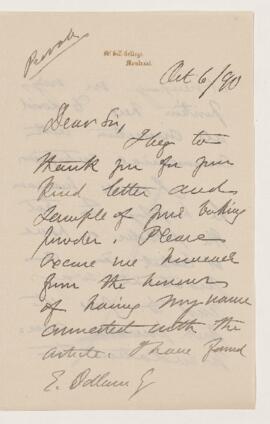 Private
McGill College,
Montreal.
Oct 6/90
Dear Sir,
I beg to
thank you for your
kind letter and
sample of your baking
powder. Please
excuse me however
from the honour
of having my name
connected with the
article. I have found
E.